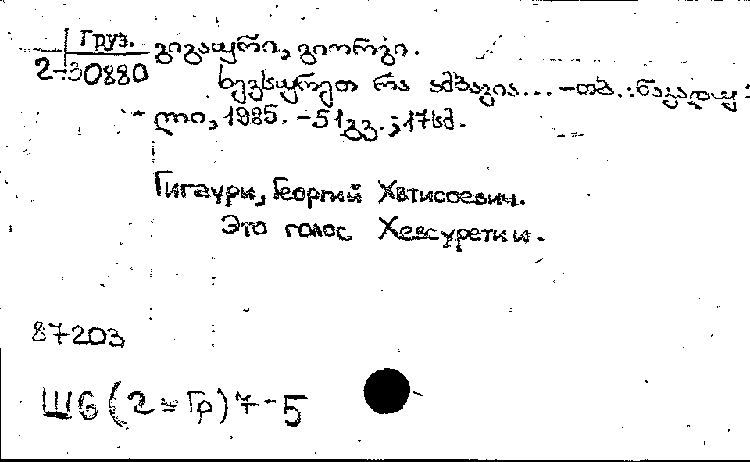 Груз.
2-30880
გიგაური, გიორგი.
ხევსურეთ რა ამბავია... -თბ.: ნაკადუ-
ლი, 1985. -51გვ.; 17სმ.
Гигаури, Георгий Хвтисоевич.
Это голос Хевсуретии.
87203
Ш6(2=Гр)7-5